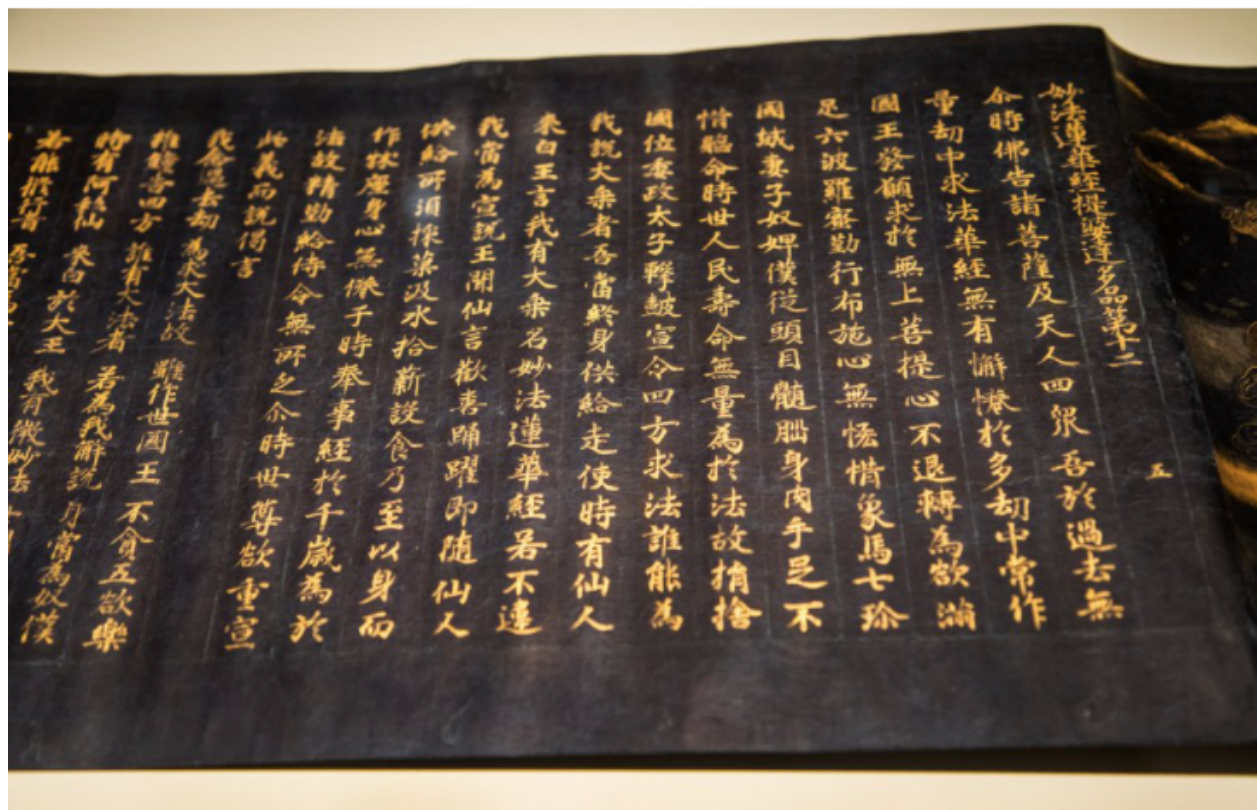 妙法蓮華經提婆達多品第十二 五
尒時佛告諸菩薩及天人四衆吾於過去無
量劫中求法華經無有懈惓於多劫中常作
國王發願求於無上菩提心不退轉為欲滿
足六波羅蜜勤行布施心無悋惜象馬七珎
國城妻子奴婢僕從頭目髓腦身肉手足不
惜軀命時世人民壽命無量為於法故捐捨
國位委政太子擊鼓宣令四方求法誰能為
我說大乘者吾當終身供給走使時有仙人
來白王言我有大乘名妙法蓮華經若不違
我當為宣說王聞仙言歡喜踊躍即隨仙人
供給所須採菓汲水拾薪設食乃至以身而
作牀座身心無倦于時奉事經於千歲為於
法故精勤給侍令無所乏尒時世尊欲重宣
此義而說偈言
我念過去劫 為求大法故 雖作世國王 不貪五欲樂
椎鐘告四方 誰有大法者 若為我解說 身當為奴僕
時有阿私仙 來白於大王 我有微妙法
若能修行者 吾當為